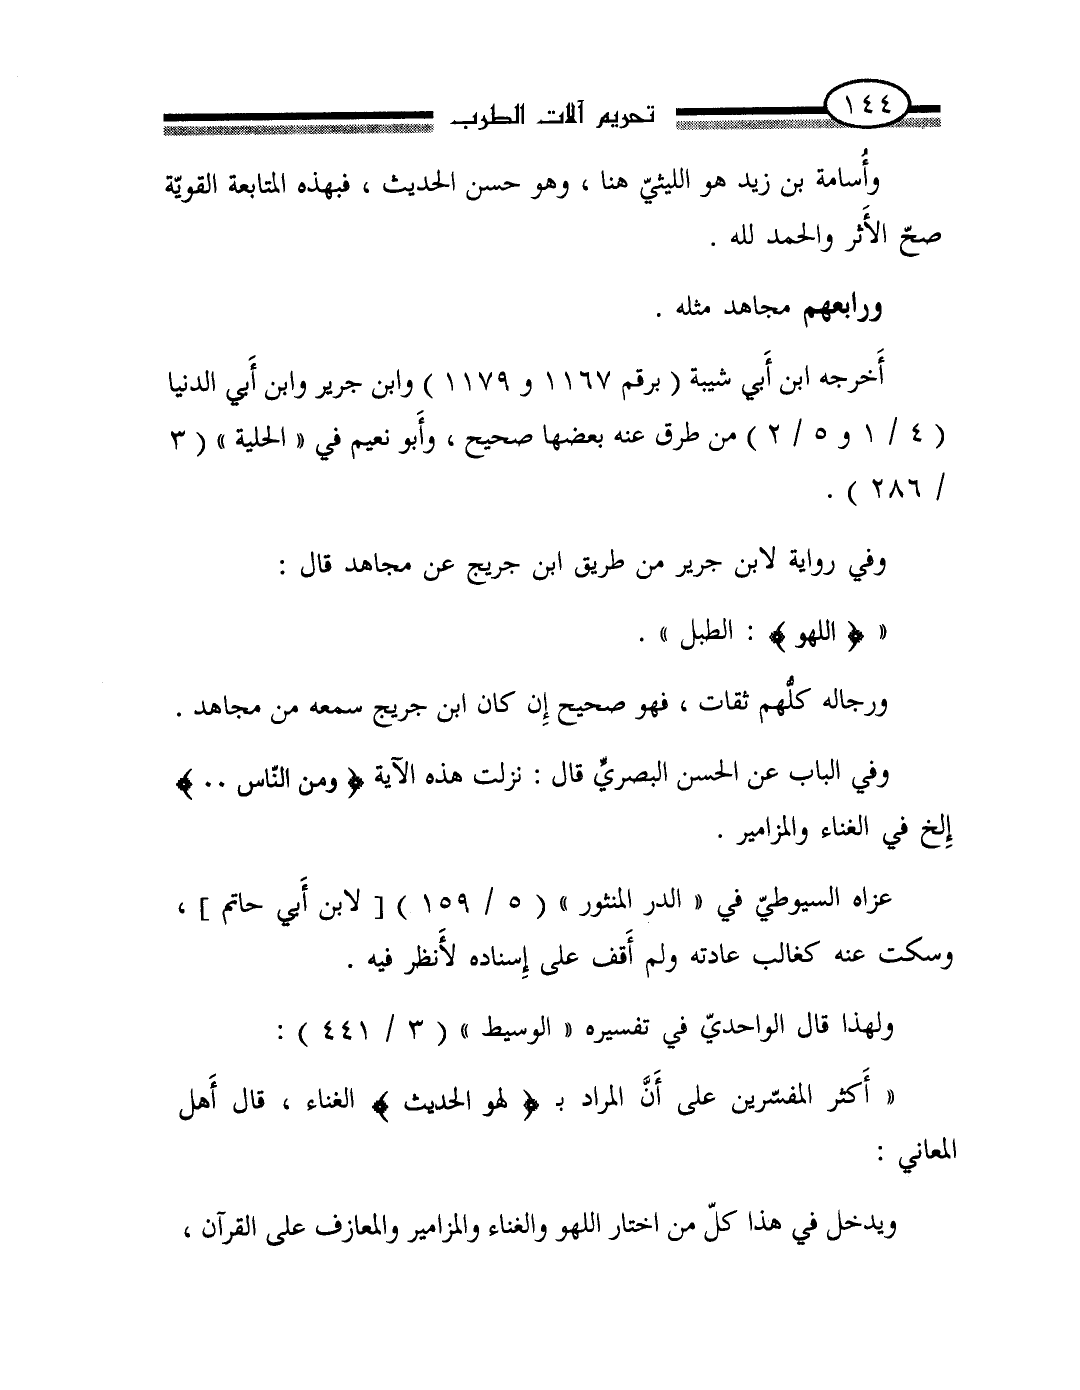 ١٤٤
تحريم آلات الطرب
وأُسامة بن زيد هو الليثيّ هنا ، وهو حسن الحديث ، فبهذه المتابعة القويّة
صحّ الأَثر والحمد لله .
ورابعهم مجاهد مثله .
أَخرجه ابن أَبي شيبة ( برقم ١١٦٧ و ١١٧٩ ) وابن جرير وابن أَبي الدنيا
( ٤ / ١ و ٥ / ٢ ) من طرق عنه بعضها صحيح ، وأَبو نعيم في « الحلية » ( ٣
/ ٢٨٦ ) .
وفي رواية لابن جرير من طريق ابن جريج عن مجاهد قال :
« ﴿ اللهو ﴾ : الطبل » .
ورجاله كلُّهم ثقات ، فهو صحيح إِن كان ابن جريج سمعه من مجاهد .
وفي الباب عن الحسن البصريِّ قال : نزلت هذه الآية ﴿ ومن النّاس .. ﴾
إِلخ في الغناء والمزامير .
عزاه السيوطيّ في « الدر المنثور » ( ٥ / ١٥٩ ) [ لابن أَبي حاتم ] ،
وسكت عنه كغالب عادته ولم أَقف على إِسناده لأَنظر فيه .
ولهذا قال الواحديّ في تفسيره « الوسيط » ( ٣ / ٤٤١ ) :
« أَكثر المفسّرين على أَنَّ المراد بـ ﴿ لهو الحديث ﴾ الغناء ، قال أَهل
المعاني :
ويدخل في هذا كلّ من اختار اللهو والغناء والمزامير والمعازف على القرآن ،